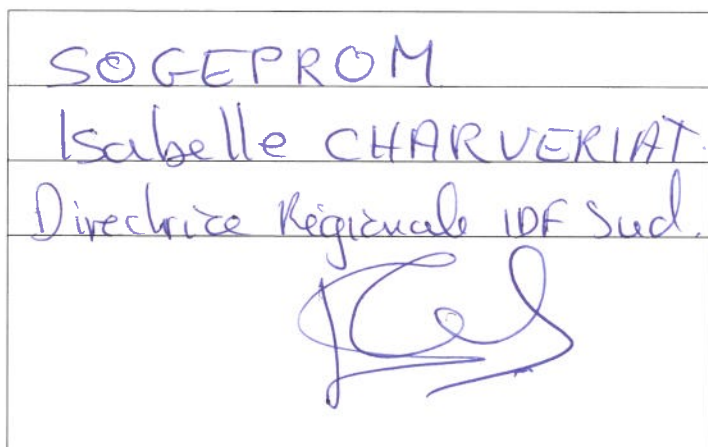 SOGEPROM
Isabelle CHARVERIAT.
Directrice Régionale IDF Sud.